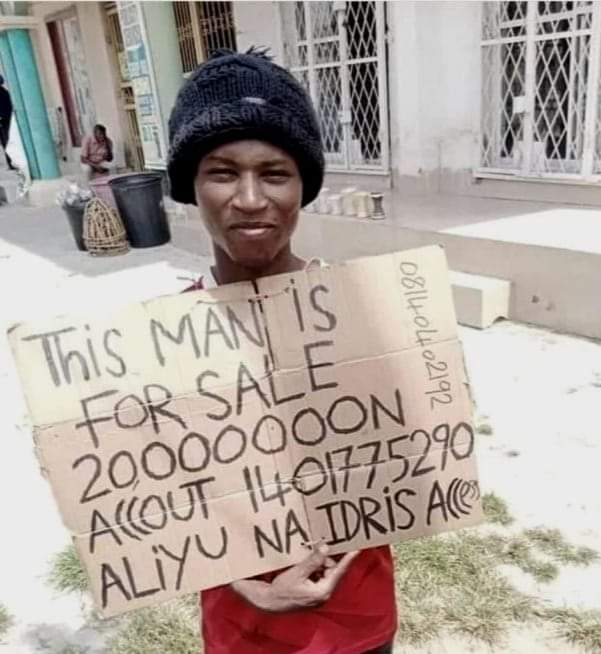 This MAN IS
FOR SALE
20,000000N
ACCOUT 1401775290
ALIYU NA IDRIS Acces
08140402192